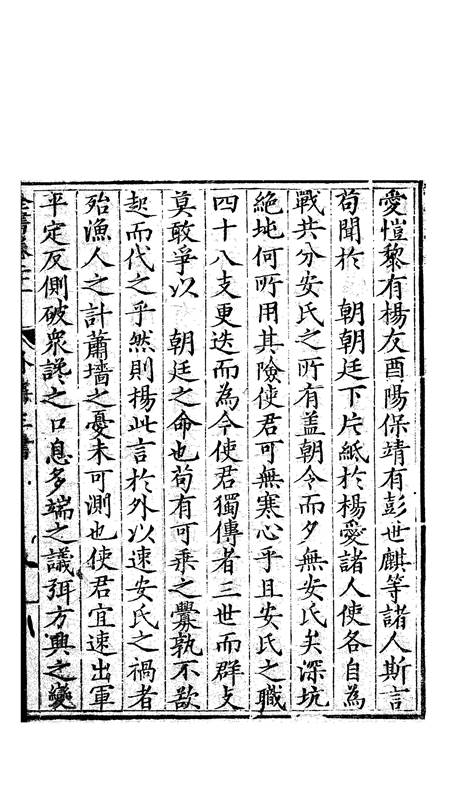 愛愷黎有楊友酉陽保靖有彭世麒等諸人斯言
苟聞於　朝朝廷下片紙於楊愛諸人使各自為
戰共分安氏之所有盖朝令而夕無安氏矣深坑
絶地何所用其險使君可無寒心乎且安氏之職
四十八支更迭而為今使君獨傳者三世而群支
莫敢爭以　朝廷之命也苟有可乗之釁孰不欲
起而代之乎然則楊此言於外以速安氏之禍者
殆漁人之計蕭墻之憂未可測也使君宜速出軍
平定反側破衆讒之口息多端之議弭方興之變